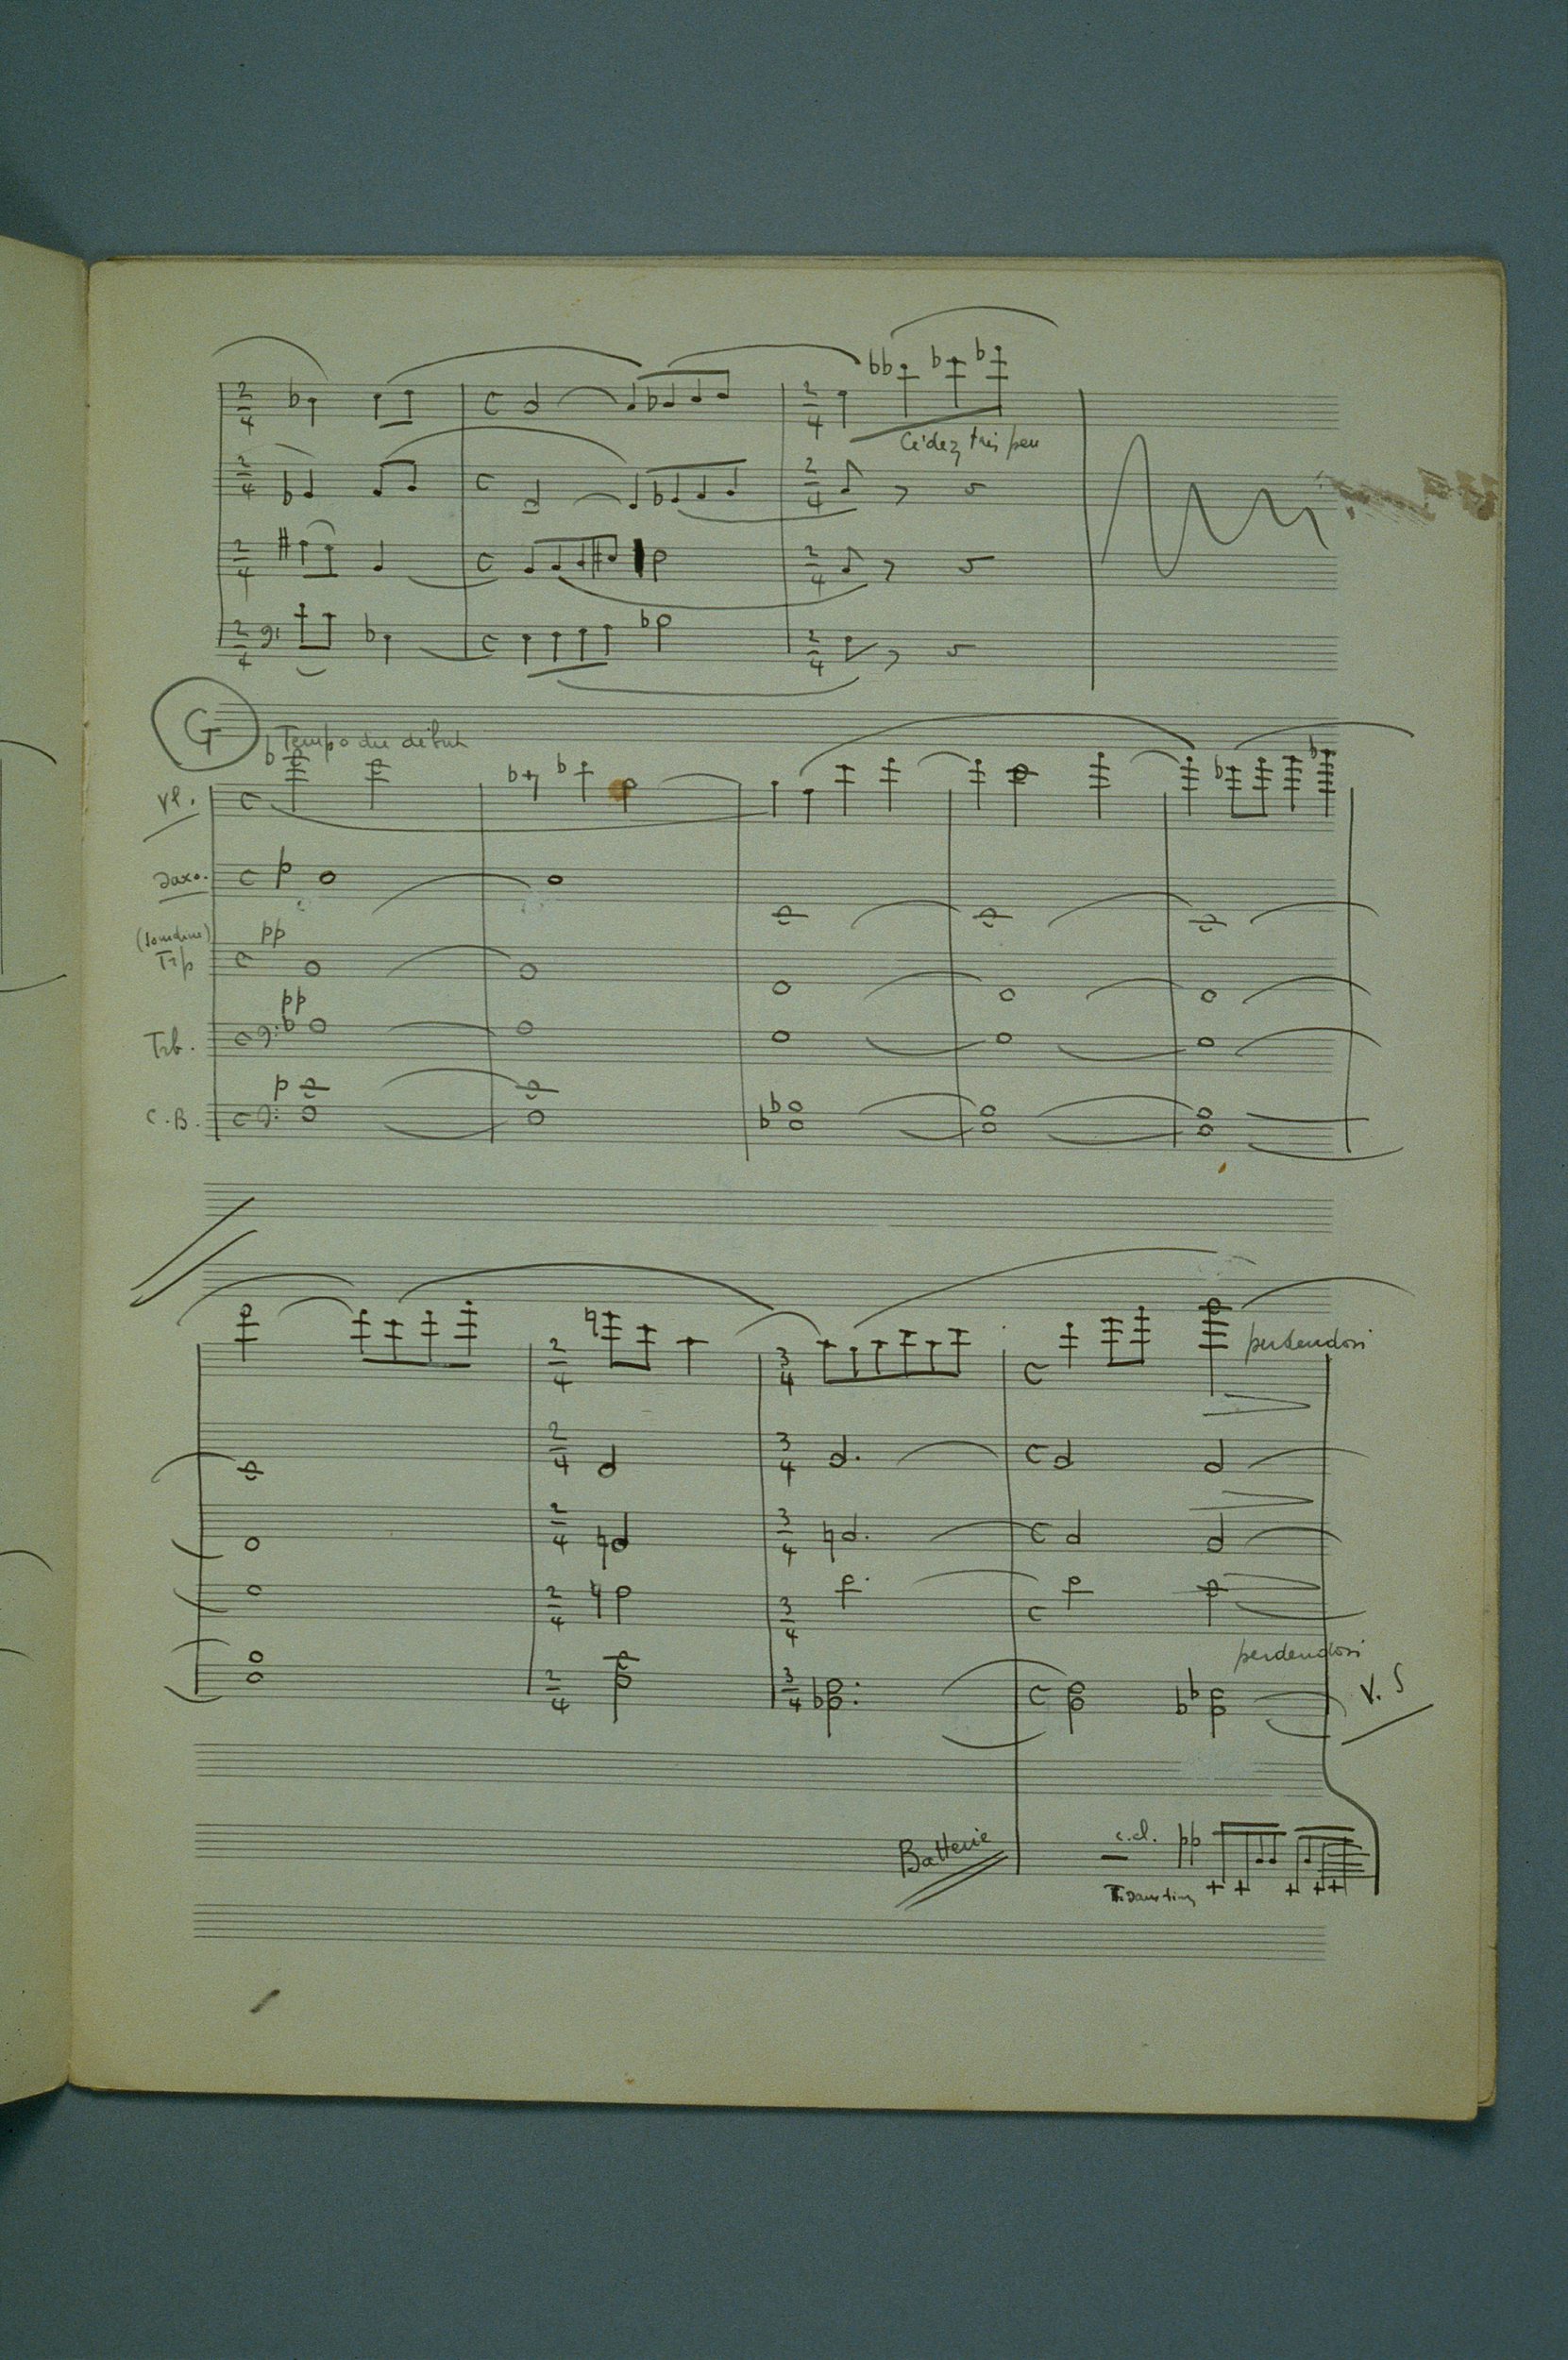 Cédez très peu
G
Tempo du début
Vl.
Saxo.
p
(sourdine)
Trp
pp
pp
Trb.
p
C.B.
perdendosi
perdendosi
V. S
Batterie
c.cl. pp